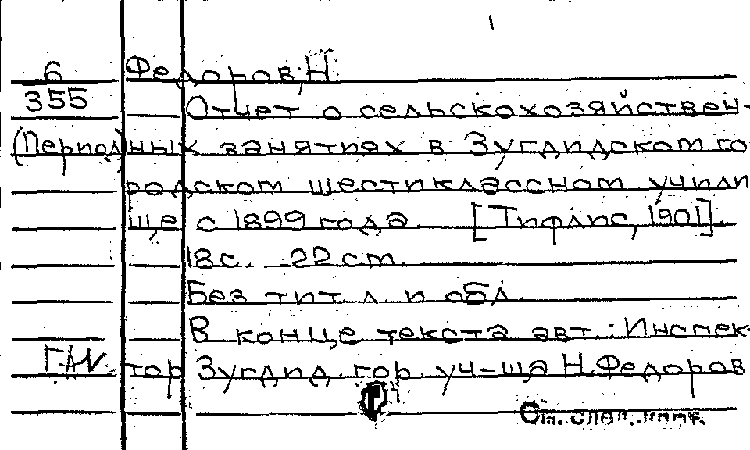 6 Федоров, Н.
355 Отчет о сельскохозяйствен-
(Период) ных занятиях в Зугдидском го-
родском шестиклассном учили
ще с 1899 года. [Тифлис, 1901].
18 с. 22 см.
Без тит. л. и обл.
В конце текста авт.: Инспек-
тор Зугдид. гор. уч-ща Н. Федоров
См. след. карт.